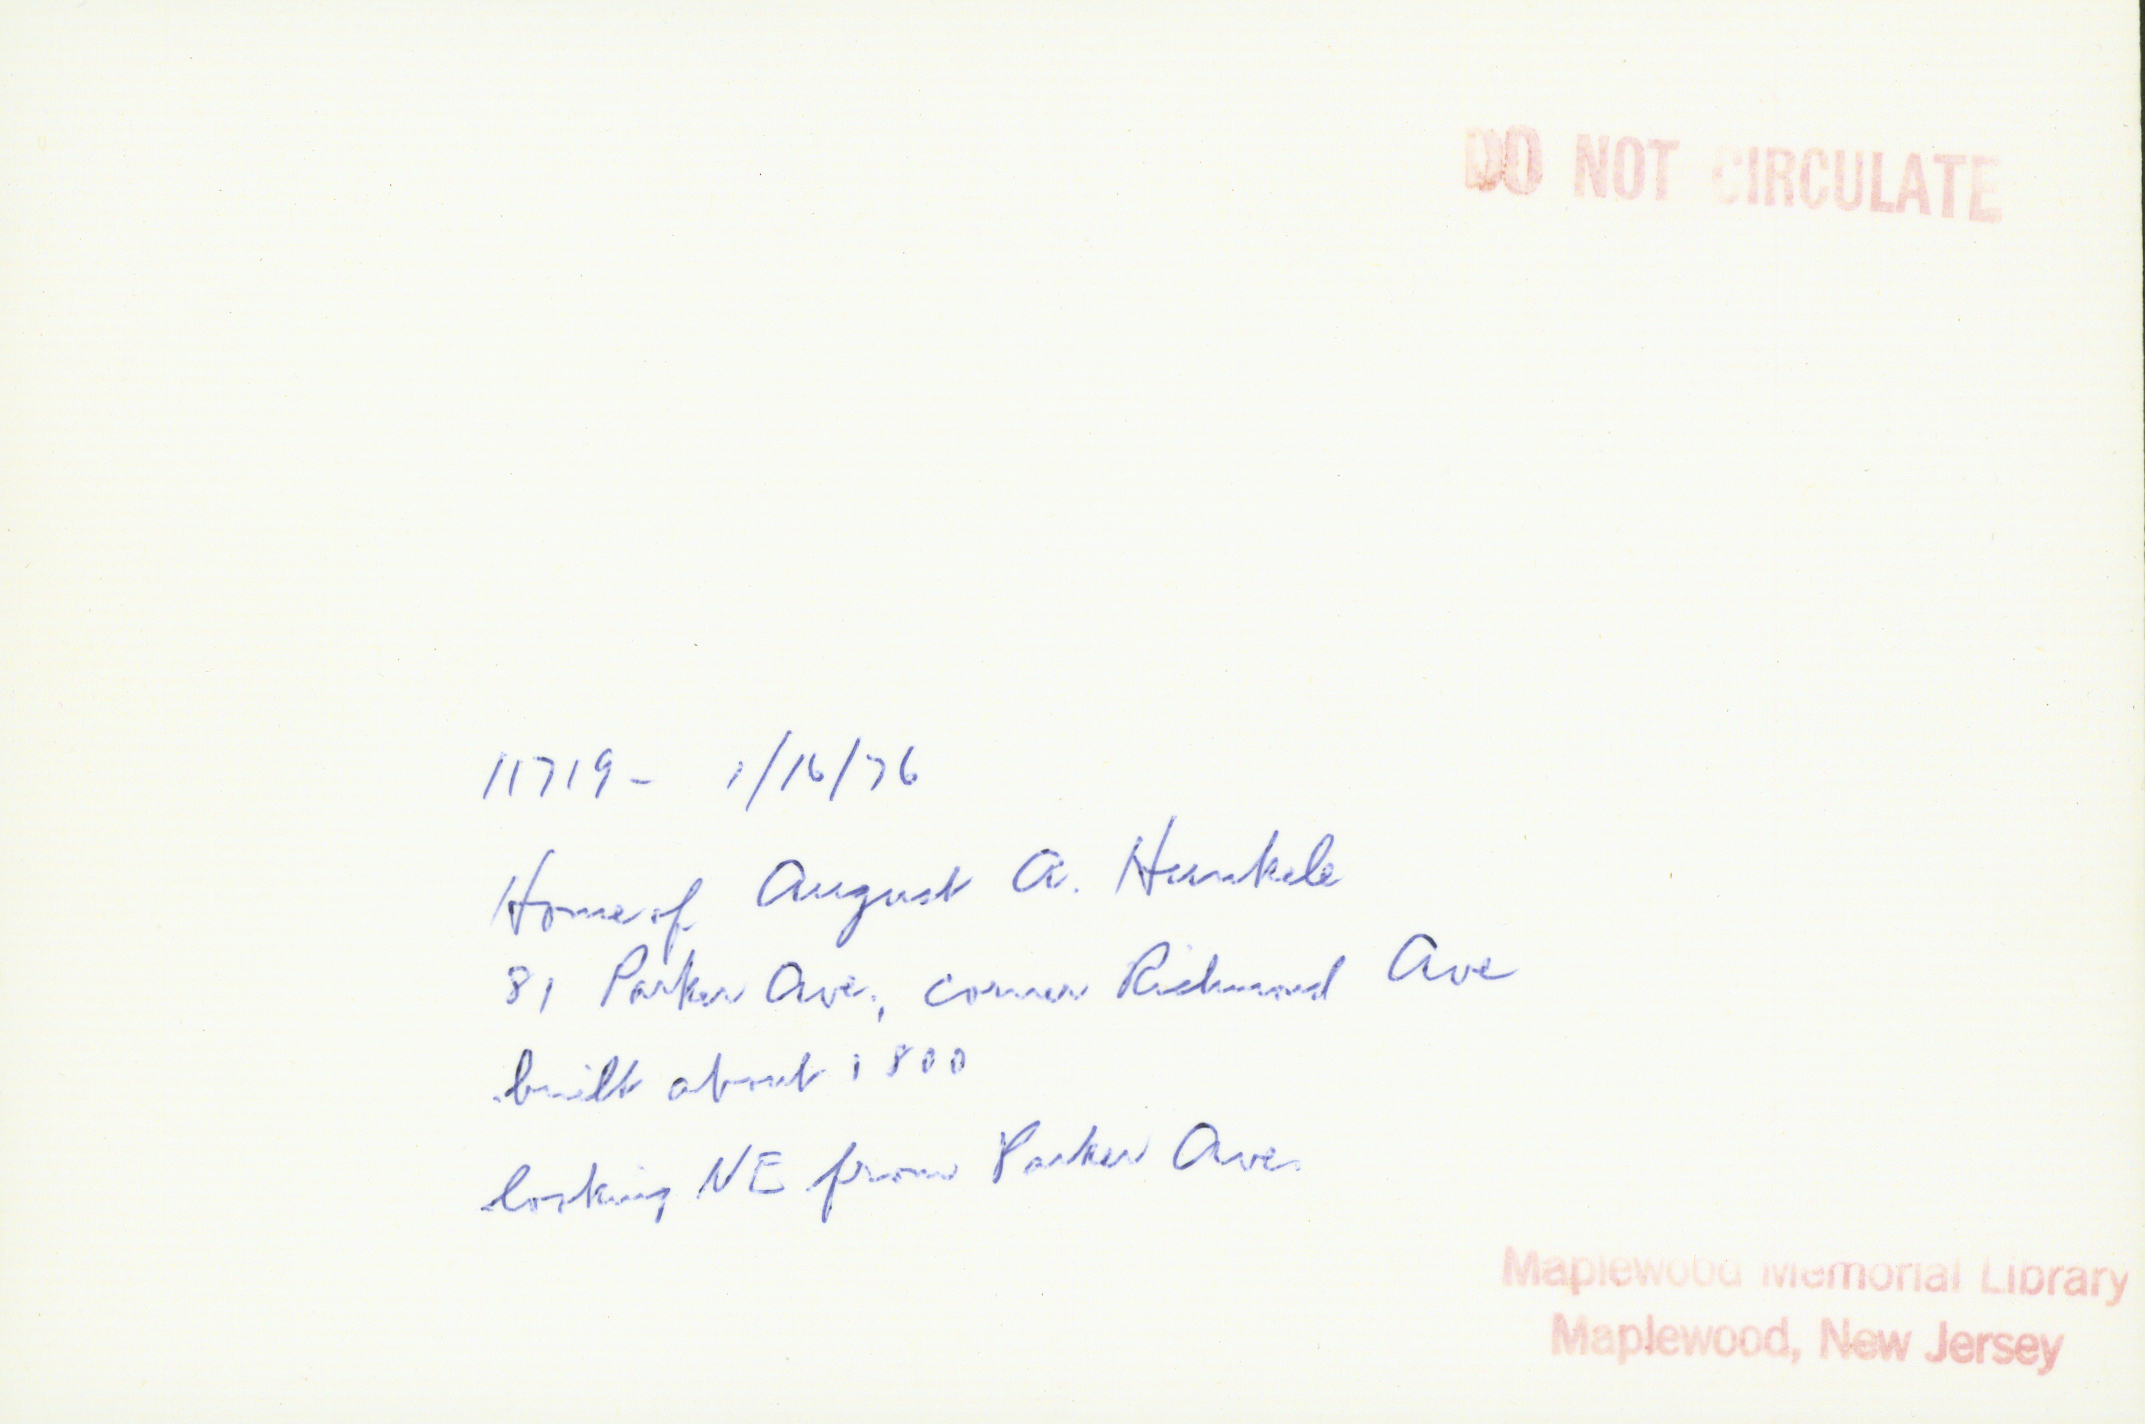 DO NOT CIRCULATE
11719- 1/16/76
Home of August A. Hunkele
81 Parker Ave., corner Richmond Ave
built about 1800
looking NE from Parker Ave.
Maplewood Memorial Library
Maplewood, New Jersey